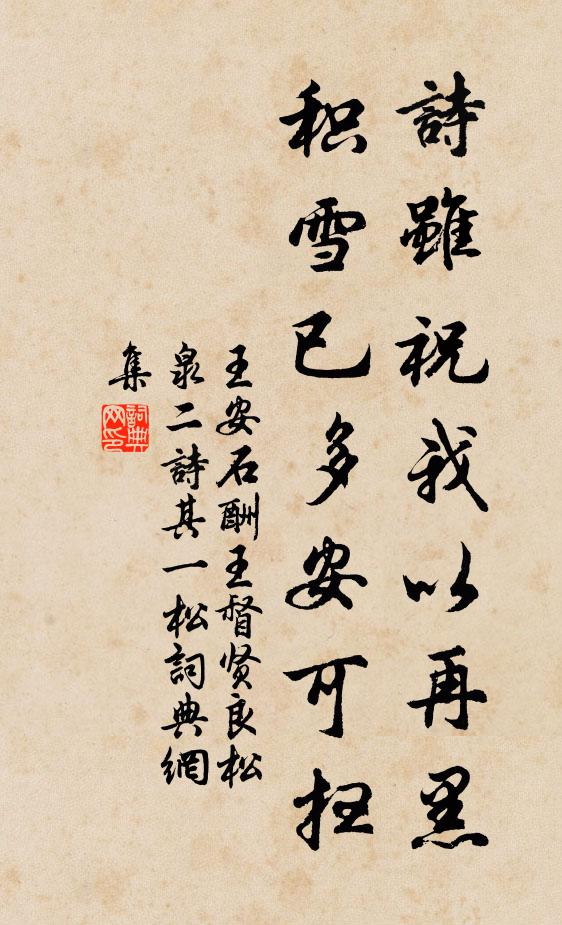 詩雖祝我以再黑
积雪已多安可扫
王安石酬王督贤良松
泉二詩其一松詞典網
集
詞典
网印